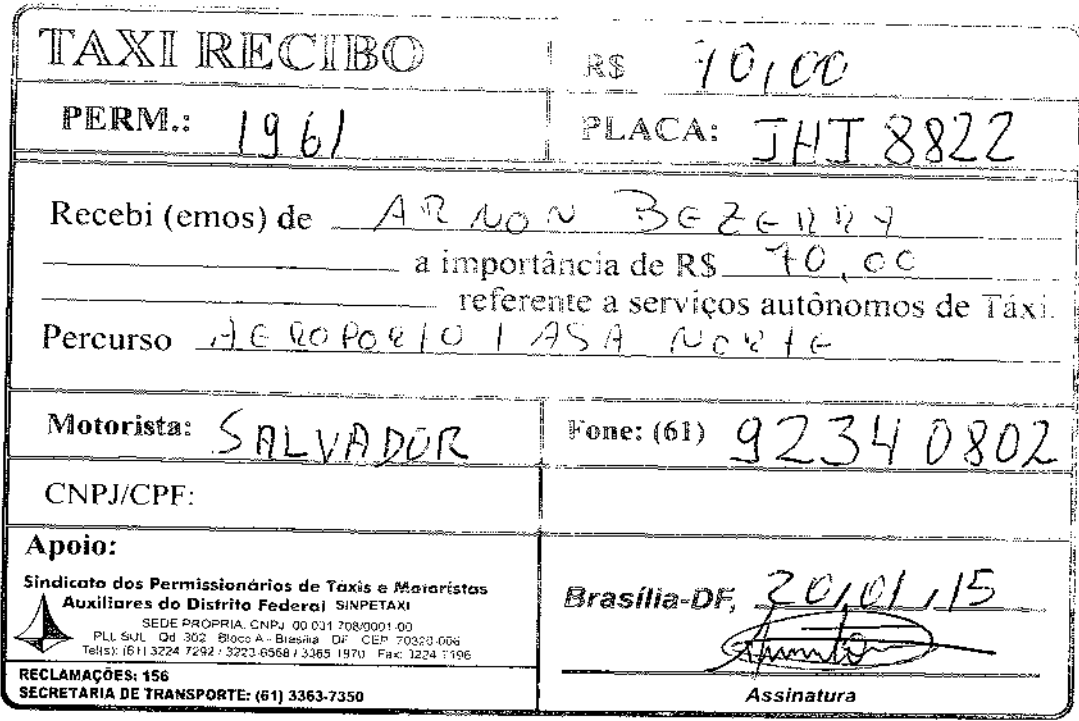 TAXI RECIBO
R$ 70,00
PERM.: 1961
PLACA: JHJ 8822
Recebi (emos) de ARNON BEZERRA
a importância de R$ 70,00
referente a serviços autônomos de Táxi.
Percurso AEROPORTO / ASA NORTE
Motorista: SALVADOR
Fone: (61) 92340802
CNPJ/CPF:
Apoio:
Sindicato dos Permissionários de Táxis e Motoristas
Auxiliares do Distrito Federal SINPETAXI
SEDE PROPRIA. CNPJ 00 031 708/0001-00
PLL SUL Qd 302 Bloco A - Brasília DF CEP 70320-006
Tel(s): (61) 3224 7292 / 3223-6568 / 3365 1970 Fax: 3224 7196
RECLAMAÇÕES: 156
SECRETARIA DE TRANSPORTE: (61) 3363-7350
Brasília-DF, 20/01/15
Assinatura